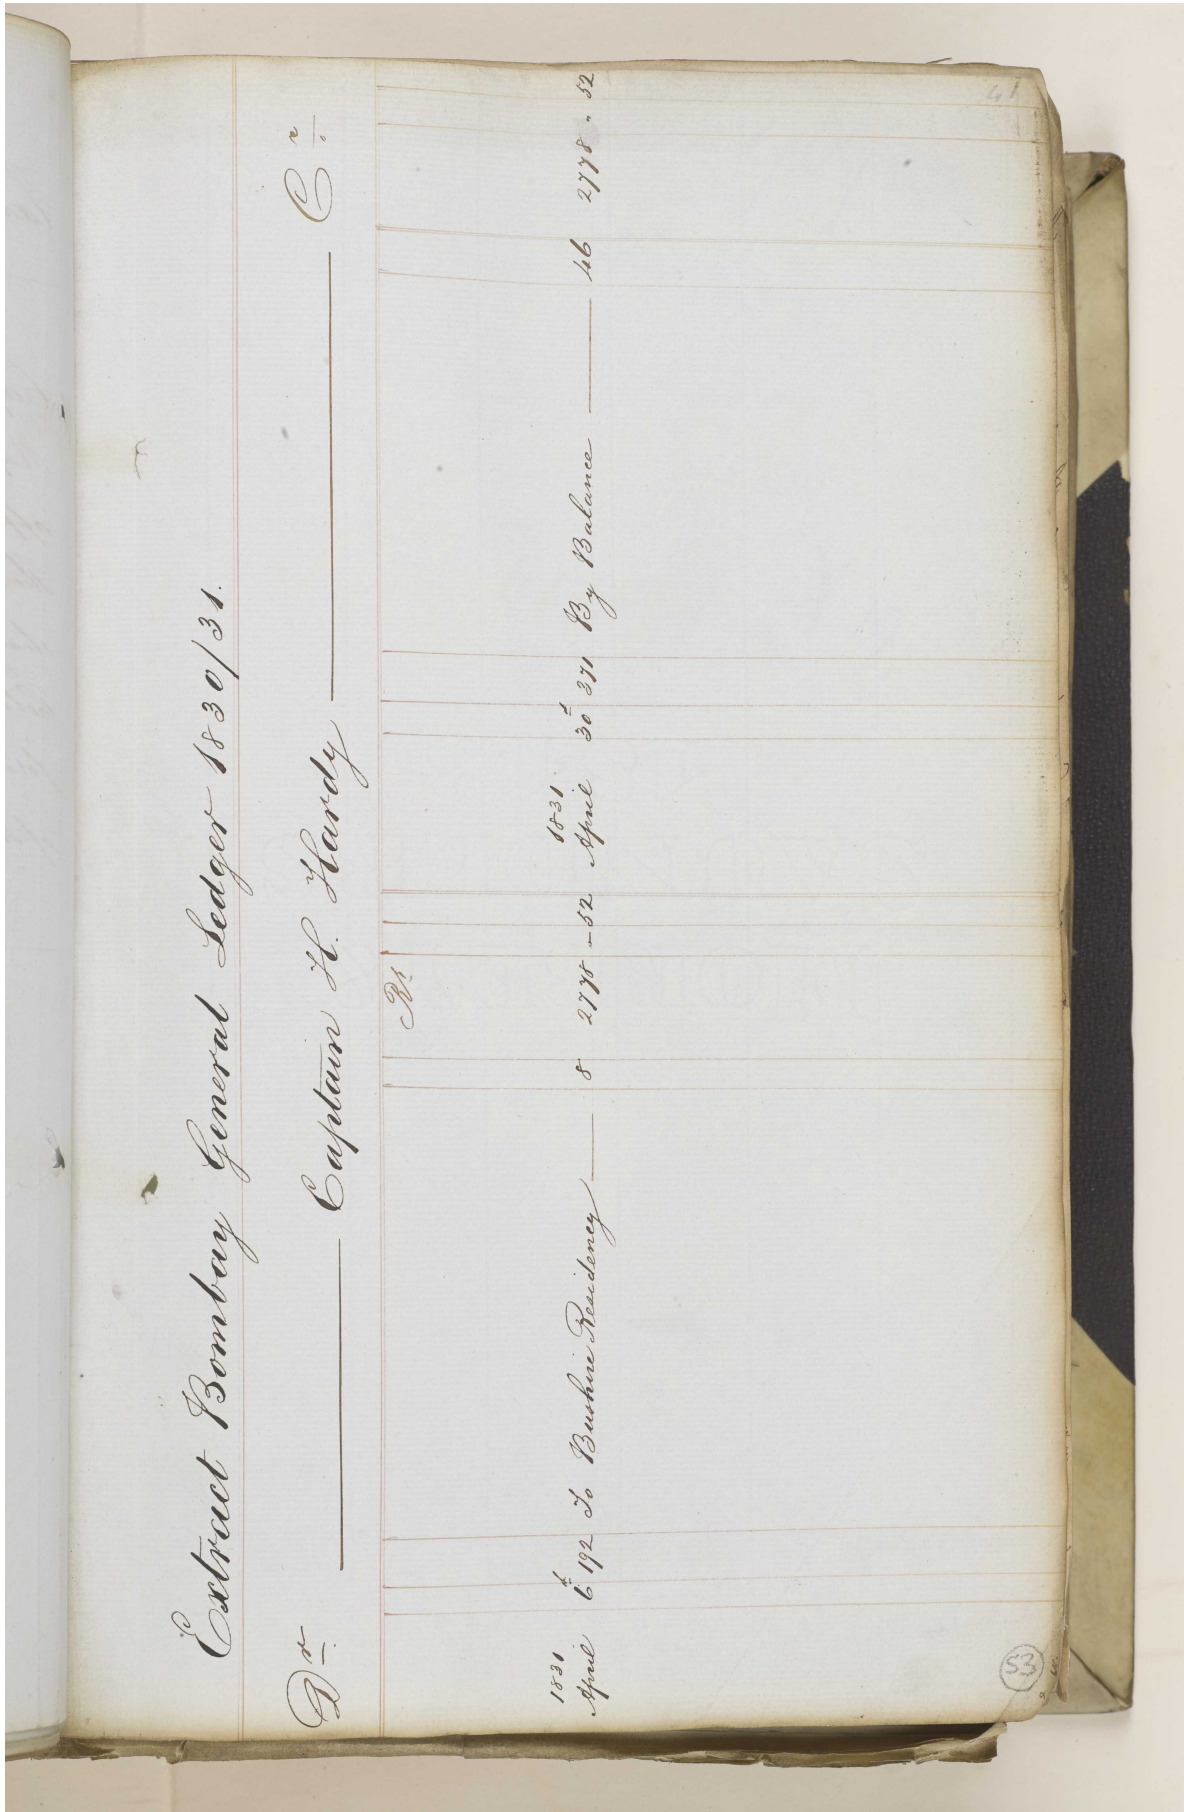 Extract Bombay General Ledger 1830/31.
Dr. Captain H. Hardy Cr.
Rs.
1831 1831
April 6th 192 To Bushire Residency 8 2778 " 52 April 30th 371 By Balance 46 2778 " 52
41
53